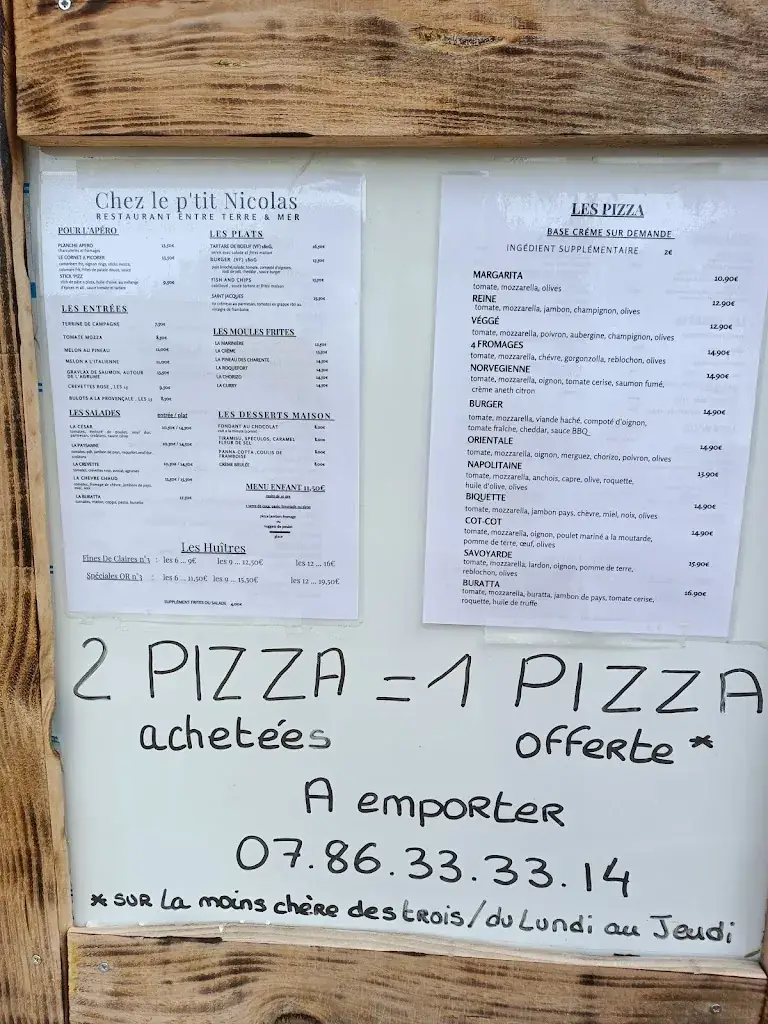 Chez le p'tit Nicolas
RESTAURANT ENTRE TERRE & MER
POUR L'APÉRO
PLANCHE APERO
charcuteries et fromages
LE CORNET A PICORER
STICK 'PIZZ'
9,50€
LES ENTRÉES
TERRINE DE CAMPAGNE 7,90€
TOMATE MOZZA 8,90€
MELON AU PINEAU
MELON A L'ITALIENNE
GRAVLAX DE SAUMON, AUTOUR
DE L'AGRUME
CREVETTES ROSE , LES 12 9,90€
BULOTS A LA PROVENÇALE , LES 12 8,90€
LES SALADES entrée / plat
LA CESAR 10,90 / 14,90€
LA PAYSANNE 10,90 / 14,90€
LA CREVETTE 10,90 / 14,90€
tomates, crevettes rose, avocat, agrumes
LA CHEVRE CHAUD
LA BURATTA
tomates, melon, coppa, pesto, buratta
LES PLATS
TARTARE DE BOEUF (VF) 180G
servie avec salade et frites maison
BURGER (VF) 180G
FISH AND CHIPS
cabillaud , sauce tartare et frites maison
SAINT JACQUES
LES MOULES FRITES
LA MARINIÈRE
LA CRÈME
LA PINEAU DES CHARENTE
LA ROQUEFORT
LA CHORIZO
LA CURRY
LES DESSERTS MAISON
FONDANT AU CHOCOLAT
TIRAMISU, SPÉCULOS, CARAMEL
FLEUR DE SEL
PANNA COTTA ,COULIS DE
FRAMBOISE
CRÈME BRULÉE
MENU ENFANT 11,50€
pizza jambon fromage
ou
nuggets de poulet
glace
Les Huîtres
Fines De Claires n°3 : les 6 ... 9€ les 9 ... 12,50€ les 12 ... 16€
Spéciales OR n°3 : les 6 ... 11,50€ les 9 ... 15,50€ les 12 ... 19,50€
SUPPLÉMENT FRITES OU SALADE 4,00€
LES PIZZA
BASE CRÉME SUR DEMANDE
INGÉDIENT SUPPLÉMENTAIRE 2€
MARGARITA 10.90€
tomate, mozzarella, olives
REINE 12.90€
tomate, mozzarella, jambon, champignon, olives
VÉGGÉ 12.90€
tomate, mozzarella, poivron, aubergine, champignon, olives
4 FROMAGES 14.90€
tomate, mozzarella, chévre, gorgonzolla, reblochon, olives
NORVEGIENNE 14.90€
tomate, mozzarella, oignon, tomate cerise, saumon fumé,
crème aneth citron
BURGER 14.90€
tomate, mozzarella, viande haché, compoté d'oignon,
tomate fraîche, cheddar, sauce BBQ
ORIENTALE 14.90€
tomate, mozzarella, oignon, merguez, chorizo, poivron, olives
NAPOLITAINE 13.90€
tomate, mozzarella, anchois, capre, olive, roquette,
huile d'olive, olives
BIQUETTE 14.90€
tomate, mozzarella, jambon pays, chèvre, miel, noix, olives
COT-COT 14.90€
tomate, mozzarella, oignon, poulet mariné a la moutarde,
pomme de terre, œuf, olives
SAVOYARDE 15.90€
tomate, mozzarella, lardon, oignon, pomme de terre,
reblochon, olives
BURATTA 16.90€
tomate, mozzarella, buratta, jambon de pays, tomate cerise,
roquette, huile de truffe
2 PIZZA = 1 PIZZA
achetées offerte *
A emporter
07.86.33.33.14
* sur la moins chère des trois / du Lundi au Jeudi